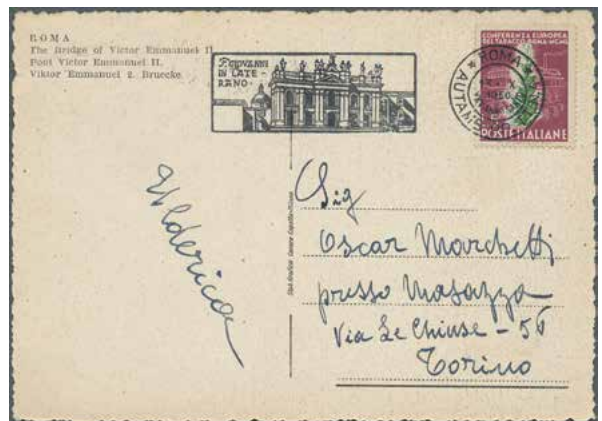 ROMA
The Bridge of Victor Emmanuel II
Pont Victor Emmanuel II.
Viktor Emmanuel 2. Bruecke
S. GIOVANNI
IN LATE-
RANO-
CONFERENZA EUROPEA
DEL TABACCO ROMA-MCML
ROMA
1950
POSTE ITALIANE
Ulderica
Sig
Oscar Marchetti
presso Masazza
Via Le Chiuse - 56
Torino